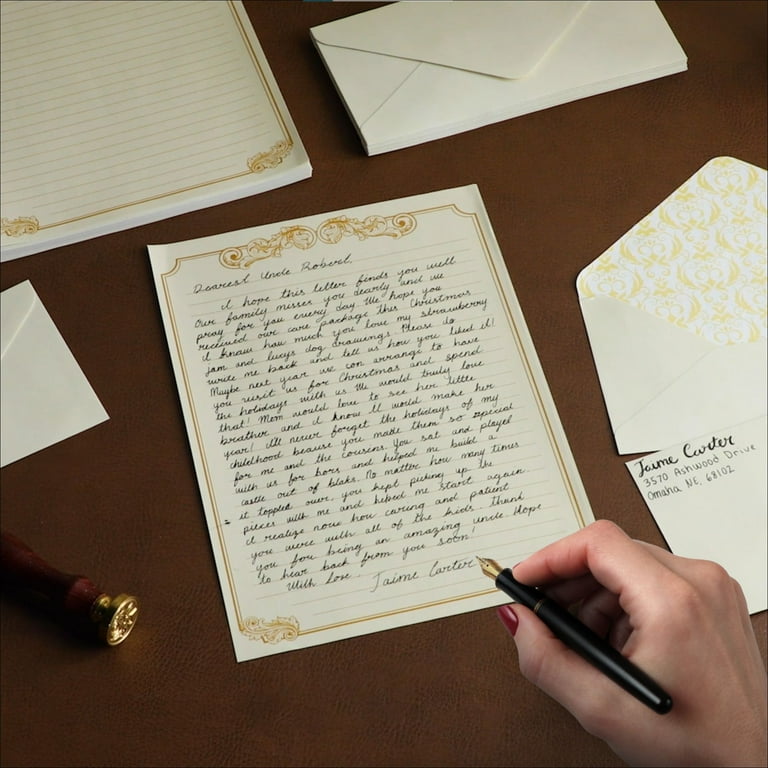 Dearest Uncle Robert,
I hope this letter finds you well
Our family misses you dearly and we
pray for you every day. We hope you
received our care package this Christmas
I know how much you love my strawberry
jam and lucys dog drawings. Please do
write me back and tell us how you liked it!
Maybe next year we can arrange to have
you visit us for Christmas and spend
the holidays with us. We would truly love
that! Mom would love to see her little
brother and I know it would make her
year! I'll never forget the holidays of my
childhood because you made them so special
for me and the cousins. You sat and played
with us for hors and helped me build a
castle out of bloks. No matter how many times
it toppled over, you kept picking up the
pieces with me and helped me start again.
I realize now how caring and patient
you were with all of the kids. Thank
you for being an amazing uncle. Hope
to hear back from you soon!
With Love, Jaime Carter
Jaime Carter
3570 Ashwood Drive
Omaha NE, 68102